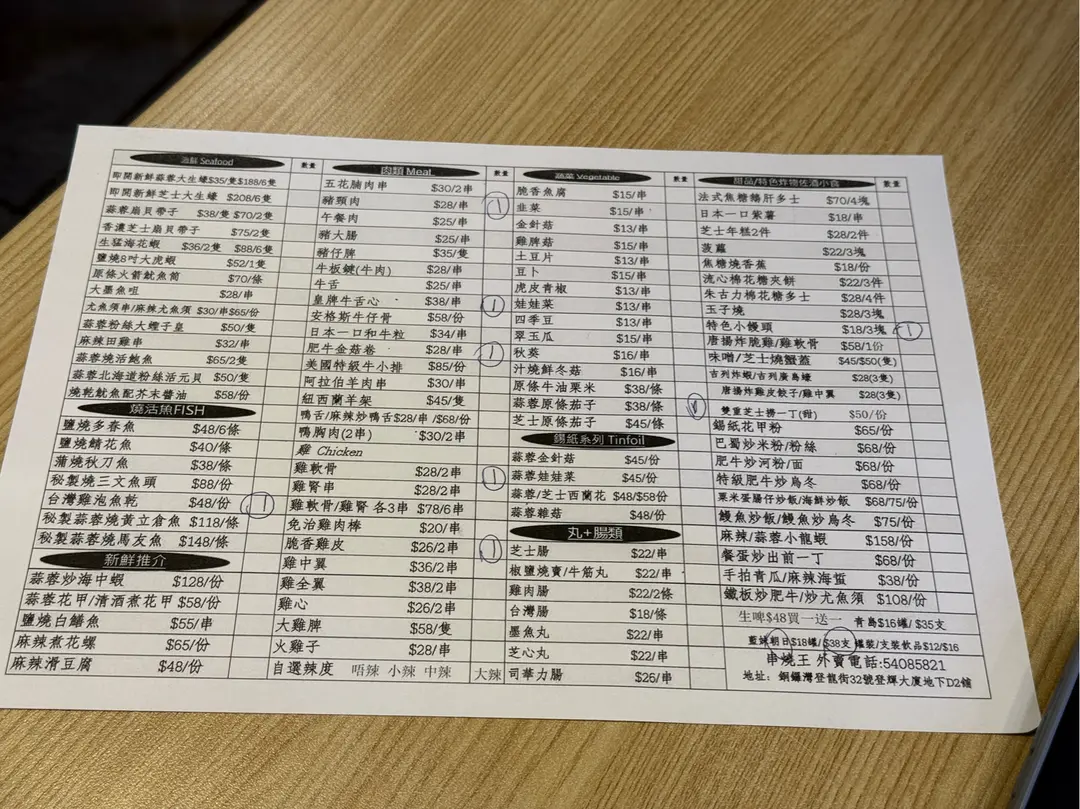 海鮮 Seafood 數量
即開新鮮蒜蓉大生蠔$35/隻$188/6隻
即開新鮮芝士大生蠔 $208/6隻
蒜蓉扇貝帶子 $38/隻 $70/2隻
香濃芝士扇貝帶子 $75/2隻
生猛海花蝦 $36/2隻 $88/6隻
鹽燒8吋大虎蝦 $52/1隻
原條火箭魷魚筒 $70/條
大墨魚咀 $28/串
尤魚須串/麻辣尤魚須 $30/串$65/份
蒜蓉粉絲大蟶子皇 $50/隻
麻辣田雞串 $32/串
蒜蓉燒活鮑魚 $65/2隻
蒜蓉北海道粉絲活元貝 $50/隻
燒乾魷魚配芥末醬油 $58/份
燒活魚FISH
鹽燒多春魚 $48/6條
鹽燒鯖花魚 $40/條
蒲燒秋刀魚 $38/條
秘製燒三文魚頭 $88/份
台灣雞泡魚乾 $48/份 1
秘製蒜蓉燒黃立倉魚 $118/條
秘製蒜蓉燒馬友魚 $148/條
新鮮推介
蒜蓉炒海中蝦 $128/份
蒜蓉花甲/清酒煮花甲 $58/份
鹽燒白鱔魚 $55/串
麻辣煮花螺 $65/份
麻辣滑豆腐 $48/份
肉類 Meat 數量
五花腩肉串 $30/2串
豬頸肉 $28/串 1
午餐肉 $25/串
豬大腸 $25/串
豬仔脾 $35/隻
牛板鍵(牛肉) $28/串
牛舌 $25/串
皇牌牛舌心 $38/串 1
安格斯牛仔骨 $58/份
日本一口和牛粒 $34/串
肥牛金菇卷 $28/串 1
美國特級牛小排 $85/份
阿拉伯羊肉串 $30/串
紐西蘭羊架 $45/隻
鴨舌/麻辣炒鴨舌$28/串 /$68/份
鴨胸肉(2串) $30/2串
雞 Chicken
雞軟骨 $28/2串 1
雞腎串 $28/2串
雞軟骨/雞腎 各3串 $78/6串
免治雞肉棒 $20/串
脆香雞皮 $26/2串 1
雞中翼 $36/2串
雞全翼 $38/2串
雞心 $26/2串
大雞脾 $58/隻
火雞子 $28/串
自選辣度 唔辣 小辣 中辣 大辣
蔬菜 Vegetable 數量
脆香魚腐 $15/串
韭菜 $15/串
金針菇 $13/串
雞脾菇 $15/串
土豆片 $13/串
豆卜 $15/串
虎皮青椒 $13/串
娃娃菜 $13/串
四季豆 $13/串
翠玉瓜 $15/串
秋葵 $16/串
汁燒鮮冬菇 $16/串
原條牛油粟米 $38/條
蒜蓉原條茄子 $38/條
芝士原條茄子 $45/條
錫紙系列 Tinfoil
蒜蓉金針菇 $45/份
蒜蓉娃娃菜 $45/份
蒜蓉/芝士西蘭花 $48/$58份
蒜蓉雜菇 $48/份
丸+腸類
芝士腸 $22/串
椒鹽燒賣/牛筋丸 $22/串
雞肉腸 $22/2條
台灣腸 $18/條
墨魚丸 $22/串
芝心丸 $22/串
司華力腸 $26/串
甜品/特色炸物佐酒小食 數量
法式焦糖鵝肝多士 $70/4塊
日本一口紫薯 $18/串
芝士年糕2件 $28/2件
菠蘿 $22/3塊
焦糖燒香蕉 $18/份
流心棉花糖夾餅 $22/3件
朱古力棉花糖多士 $28/4件
玉子燒 $28/3塊
特色小饅頭 $18/3塊 1
唐揚炸脆雞/雞軟骨 $58/1份
味噌/芝士燒蟹蓋 $45/$50(隻)
吉列炸蝦/吉列廣島蠔 $28(3隻)
唐揚炸雞皮餃子/雞中翼 $28(3隻)
雙重芝士撈一丁(甜) $50/份
錫紙花甲粉 $65/份
巴蜀炒米粉/粉絲 $68/份
肥牛炒河粉/面 $68/份
特級肥牛炒烏冬 $68/份
粟米蛋腸仔炒飯/海鮮炒飯 $68/75/份
鰻魚炒飯/鰻魚炒烏冬 $75/份
麻辣/蒜蓉小龍蝦 $158/份
餐蛋炒出前一丁 $68/份
手拍青瓜/麻辣海蜇 $38/份
鐵板炒肥牛/炒尤魚須 $108/份
生啤$48買一送一 青島$16罐/ $35支
藍妹朝日$18罐/ $38支 罐裝/支裝飲品$12/$16
串燒王 外賣電話:54085821
地址: 銅鑼灣登龍街32號登輝大廈地下D2舖